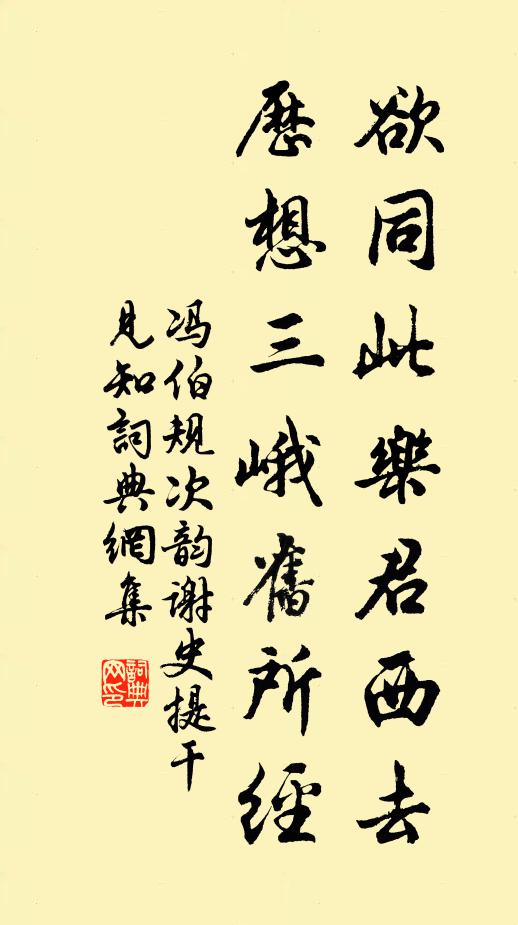 欲同此樂君西去
歷想三峨舊所經
冯伯規次韵謝史提干
見知詞典網集
詞典網印